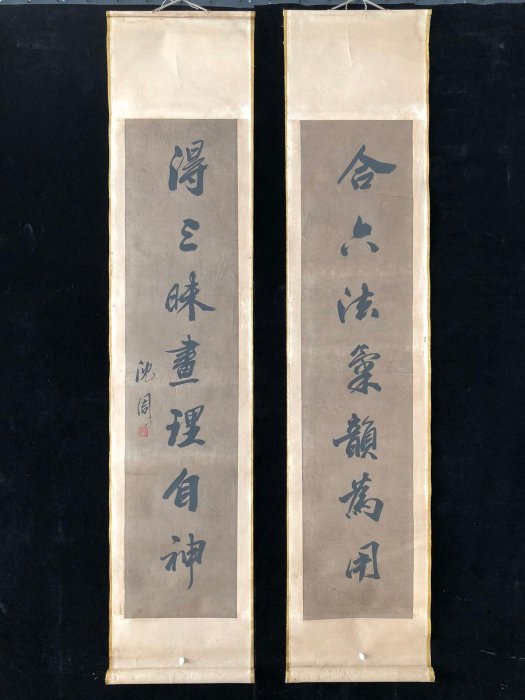 合六法氣韻為用
得三昧畫理自神
沈周